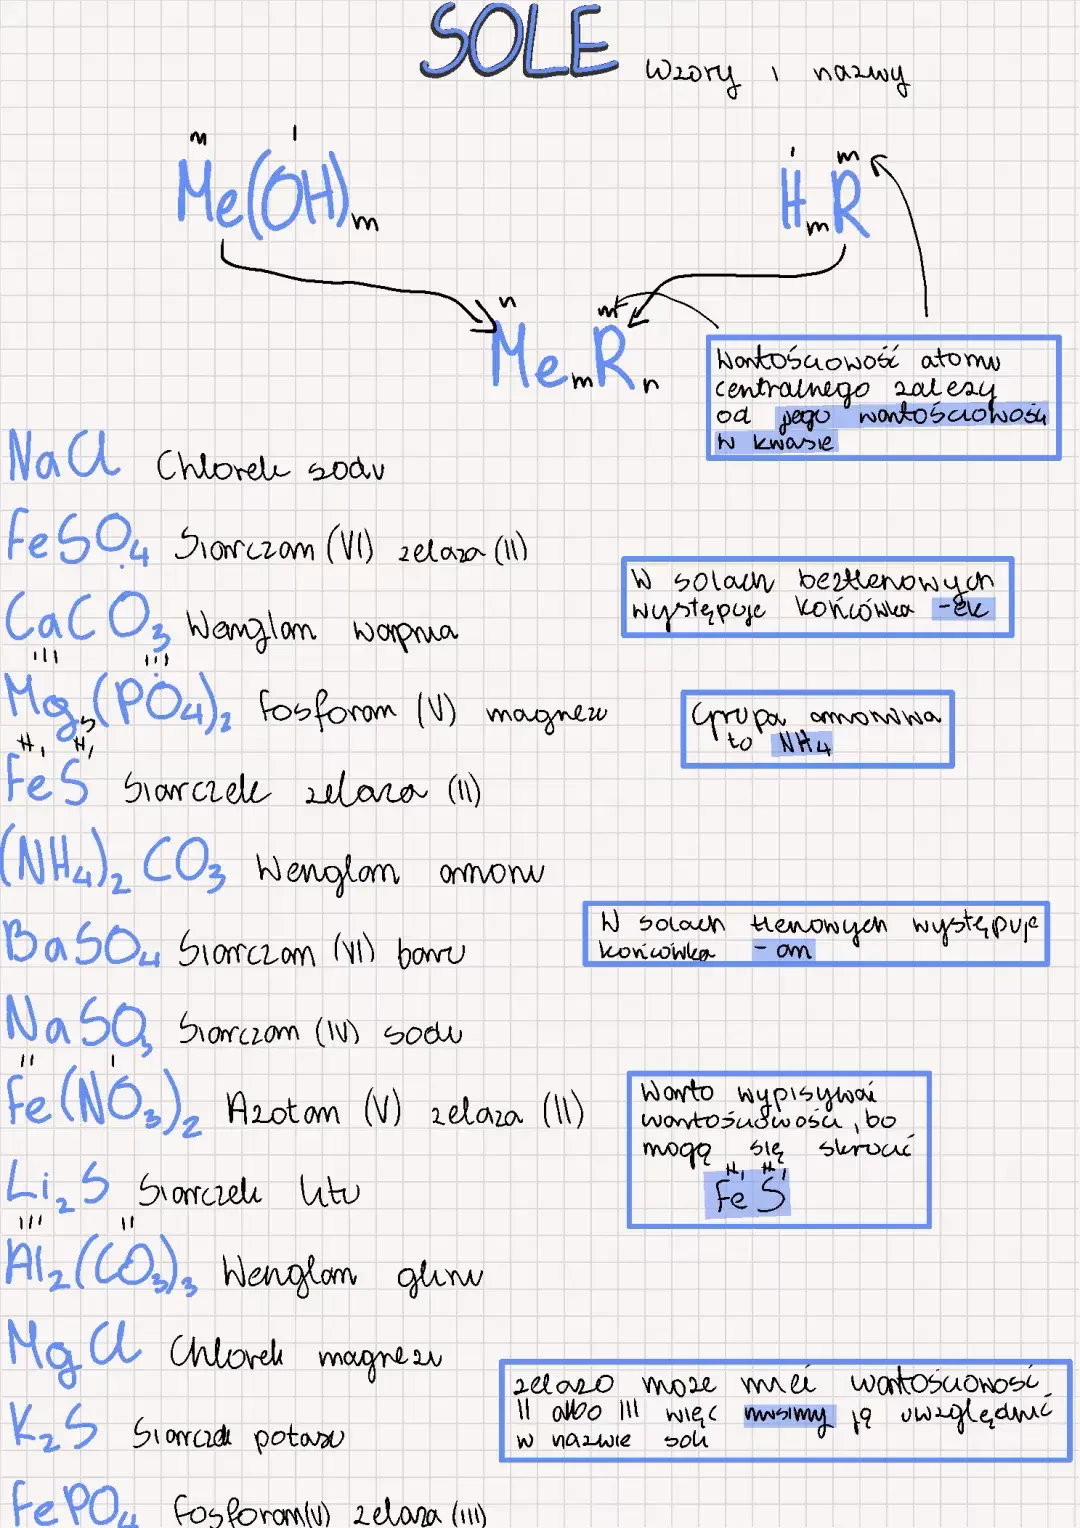 SOLE wzory i nazwy
n I
Me(OH)m
I m
HmR
n m
MemRn
Wartościowość atomu
centralnego zależy
od jego wartościowości
w kwasie
NaCl Chlorek sodu
FeSO4 Siarczan (VI) żelaza (II)
W solach beztlenowych
występuje końcówka -ek
CaCO3 Wenglan wapnia
III III
Mg3(PO4)2 fosforan (V) magnezu
Grupa amonowa
to NH4
FeS Siarczek żelaza (II)
(NH4)2CO3 Wenglan amonu
W solach tlenowych występuje
końcówka -an
BaSO4 Siarczan (VI) baru
NaSO3 Siarczan (IV) sodu
II I
Fe(NO3)2 Azotan (V) żelaza (II)
Warto wypisywać
wartościowości, bo
mogą się skrócić
FeS
Li2S Siarczek litu
III II
Al2(CO3)3 Wenglan glinu
MgCl Chlorek magnezu
żelazo może mieć wartościowość
II albo III więc musimy ją uwzględnić
w nazwie soli
K2S Siarczek potasu
FePO4 fosforan(V) żelaza (III)